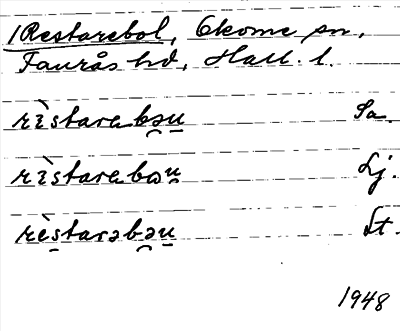 Restarebol, Okome sn,
Faurås hd, Hall. l.
rìstarabəu Sa.
rìstarabəu Lj.
rèstarəbəu St.
1948